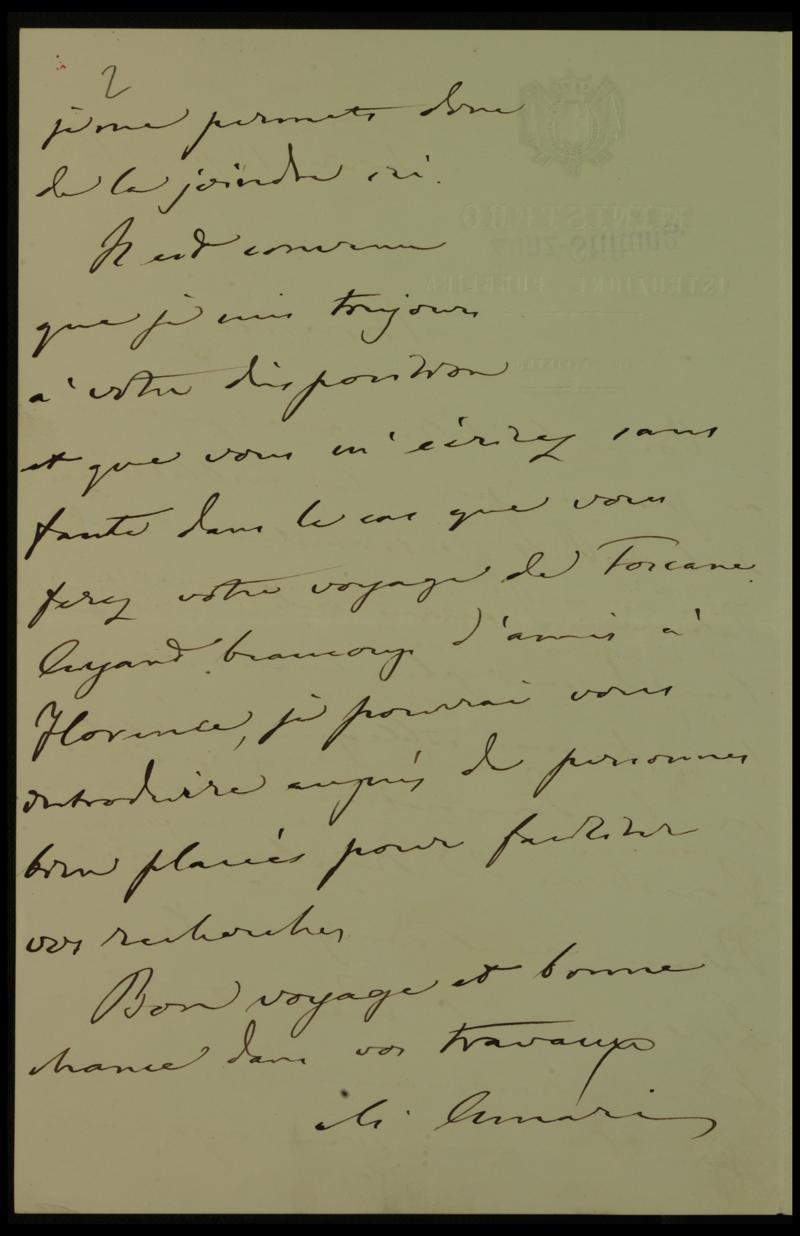 2
je me permets donc
de la joindre ici.
Il est convenu
que je suis toujours
à votre disposition
et que vous m'écrirez sans
faute dans le cas que vous
ferez votre voyage de Toscane.
Ayant beaucoup d'amis à
Florence, je pourrai vous
introduire auprès de personnes
bien placées pour faciliter
vos recherches
Bon voyage et bonne
chance dans vos travaux
M. Amari
MINISTERO
ISTRUZIONE PUBBLICA